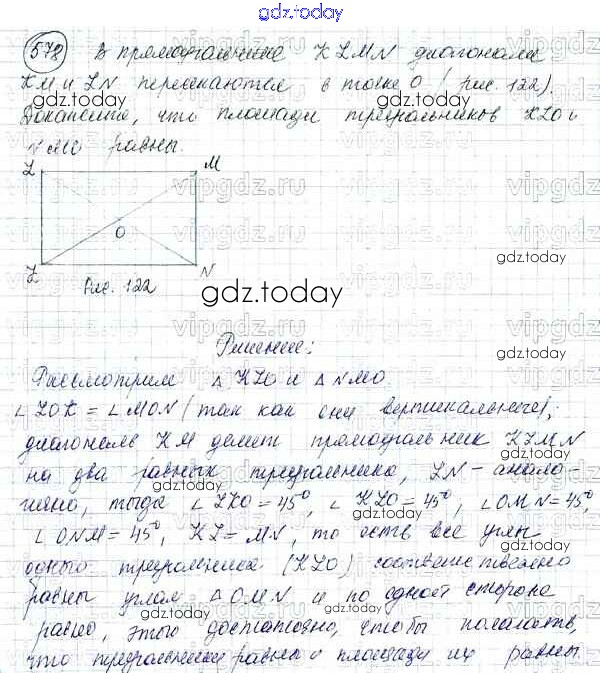 gdz.today
578 В прямоугольнике KLMN диагонали
KM и LN пересекаются в точке O (рис. 122).
Докажите, что площади треугольников KLO и
NMO равны.
L M
O
Z N
Рис. 122
Решение:
Рассмотрим △ KLO и △ NMO.
∠ LOK = ∠ MON (так как они вертикальные),
диагональ KM делит прямоугольник KLMN
на два равных треугольника, LN - анало-
гично, тогда ∠ LKO = 45°, ∠ KLO = 45°, ∠ OMN = 45°,
∠ ONM = 45°, KL = MN, то есть все углы
одного треугольника (KLO) соответственно
равны углам △ OMN и по одной стороне
равно, этого достаточно, чтобы полагать,
что треугольники равны и площади их равны.
vipgdz.ru
gdz.today